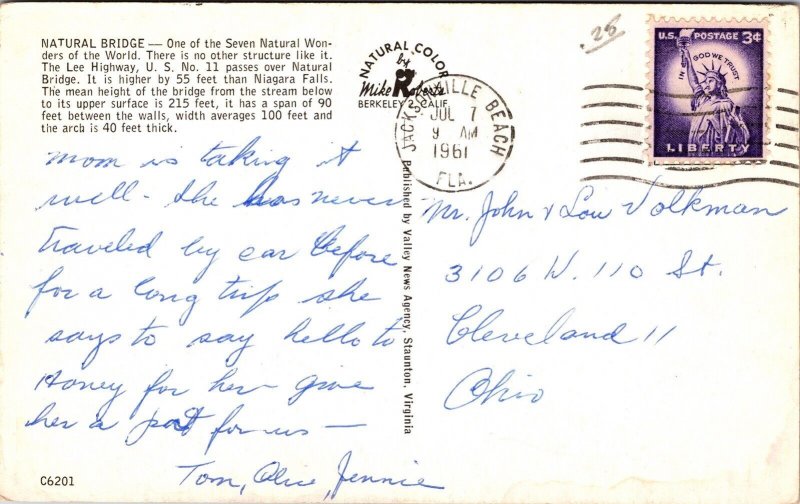 NATURAL BRIDGE — One of the Seven Natural Won-
ders of the World. There is no other structure like it.
The Lee Highway, U. S. No. 11 passes over Natural
Bridge. It is higher by 55 feet than Niagara Falls.
The mean height of the bridge from the stream below
to its upper surface is 215 feet, it has a span of 90
feet between the walls, width averages 100 feet and
the arch is 40 feet thick.
NATURAL COLOR
by
Mike Roberts
BERKELEY 2, CALIF.
JACKSONVILLE BEACH
JUL 7
9 AM
1961
FLA.
25
U.S. POSTAGE 3¢
IN GOD WE TRUST
LIBERTY
mom is taking it
well - she has never
traveled by car before
for a long trip she
says to say hello to
Honey for her - give
her a pat for us —
Tom, Olive, Jennie
Published by Valley News Agency, Staunton, Virginia
Mr. John & Lou Volkman
3106 W. 110 St.
Cleveland 11
Ohio
C6201